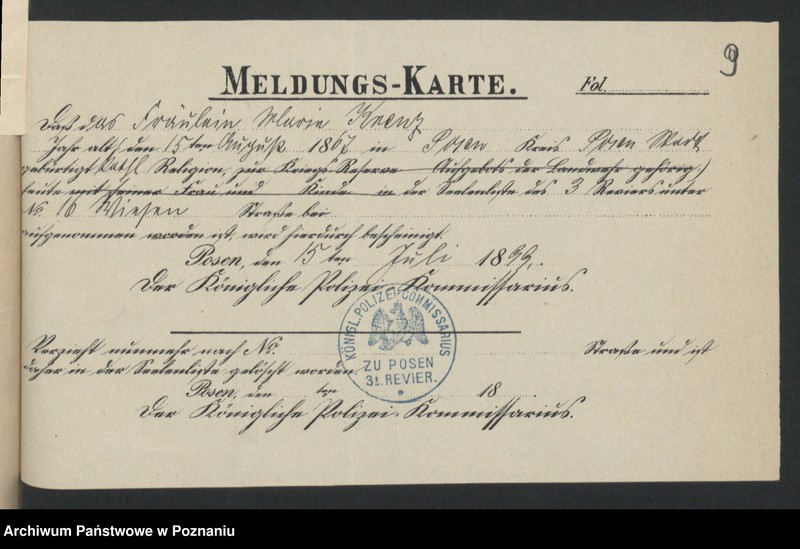 9
MELDUNGS-KARTE.
Fol.
Daß das Fräulein Marie Krenz
Jahr alt, den 15 ten August 1867 in Posen Kreis Posen Stadt
gebürtigt, kath. Religion, zur Kriegs-Reserve Aufgebots der Landwehr gehörig,
heute mit seiner Frau und Kinde in der Seelenliste des 3 Reviers unter
No. 16 Wiesen Straße bei
aufgenommen worden ist, wird hierdurch bescheinigt.
Posen, den 15 ten Juli 1899.
Der Königliche Polizei-Kommissarius.
KÖNIGL. POLIZEI-COMMISSARIUS
ZU POSEN
3t. REVIER.
Verzieht nunmehr nach No. Straße und ist
daher in der Seelenliste gelöscht worden.
Posen, den ten 18
Der Königliche Polizei-Kommissarius.
Archiwum Państwowe w Poznaniu